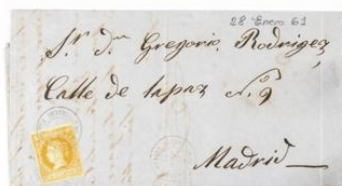 28 Enero 61
Sr. Dn Gregorio Rodrigez
Calle de lapaz nº 9
Madrid